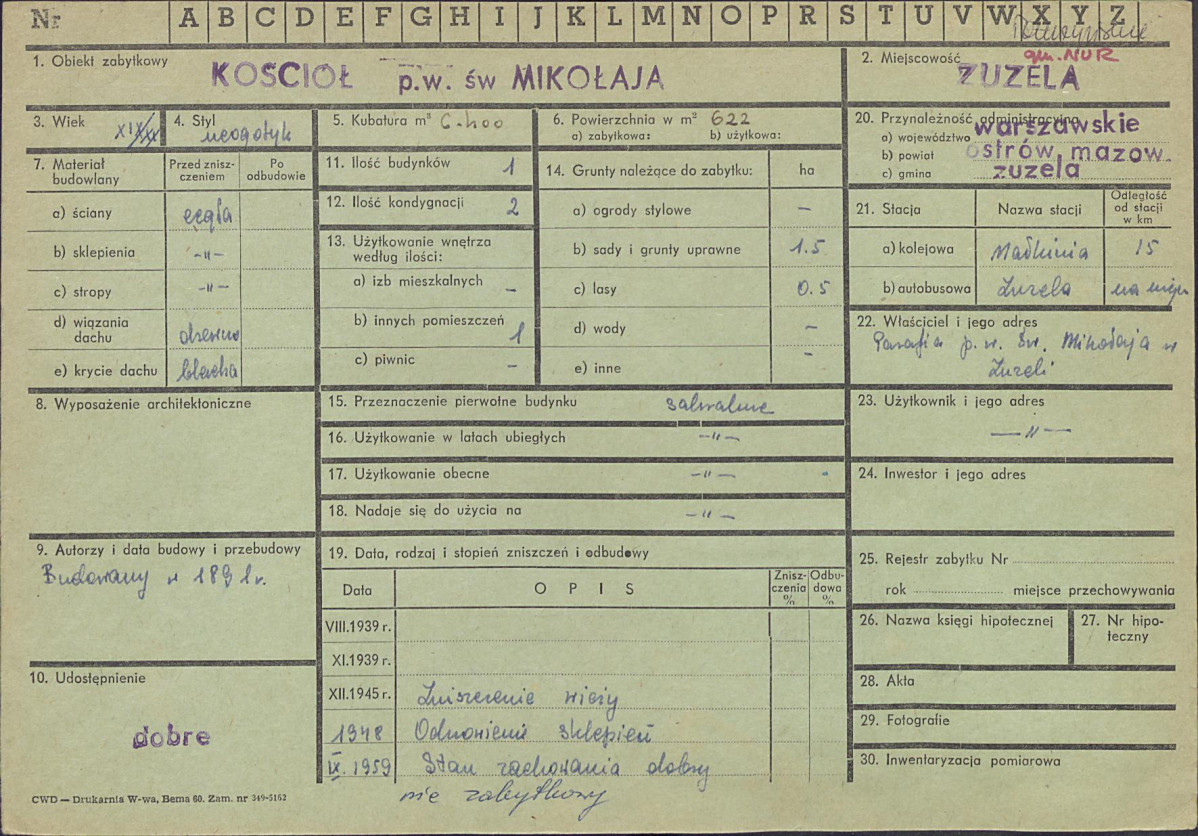 Nr A B C D E F G H I J K L M N O P R S T U V W X Y Z
1. Obiekt zabytkowy KOŚCIÓŁ p.w. św MIKOŁAJA
2. Miejscowość gm. NUR
ZUZELA
3. Wiek XIX/XX
4. Styl neogotyk
5. Kubatura m³ 6.400
6. Powierzchnia w m² 622
a) zabytkowa: b) użytkowa:
20. Przynależność administracyjna
a) województwo warszawskie
b) powiat ostrów mazow.
c) gmina zuzela
7. Materiał budowlany
Przed zniszczeniem
Po odbudowie
a) ściany cegła
b) sklepienia -"-
c) stropy -"-
d) wiązania dachu drewno
e) krycie dachu blacha
11. Ilość budynków 1
12. Ilość kondygnacji 2
13. Użytkowanie wnętrza
według ilości:
a) izb mieszkalnych –
b) innych pomieszczeń 1
c) piwnic –
14. Grunty należące do zabytku: ha
a) ogrody stylowe –
b) sady i grunty uprawne 1.5
c) lasy 0.5
d) wody –
e) inne –
21. Stacja Nazwa stacji Odległość od stacji w km
a) kolejowa Małkinia 15
b) autobusowa Zuzela na miejscu
22. Właściciel i jego adres
Parafia p.w. św. Mikołaja w
Zuzeli
8. Wyposażenie architektoniczne
15. Przeznaczenie pierwotne budynku sakralne
16. Użytkowanie w latach ubiegłych -"-
17. Użytkowanie obecne -"-
18. Nadaje się do użycia na -"-
23. Użytkownik i jego adres
-"-
24. Inwestor i jego adres
9. Autorzy i data budowy i przebudowy
Budowany w 1891 r.
19. Data, rodzaj i stopień zniszczeń i odbudowy
Data OPIS Zniszczenia % Odbudowa %
VIII.1939 r.
XI.1939 r.
XII.1945 r. Zniszczenie wieży
1948 Odnowienie sklepień
IX.1959 Stan zachowania dobry
nie zabytkowy
25. Rejestr zabytku Nr
rok miejsce przechowywania
26. Nazwa księgi hipotecznej
27. Nr hipoteczny
10. Udostępnienie
dobre
28. Akta
29. Fotografie
30. Inwentaryzacja pomiarowa
CWD — Drukarnia W-wa, Bema 60. Zam. nr 349-5162